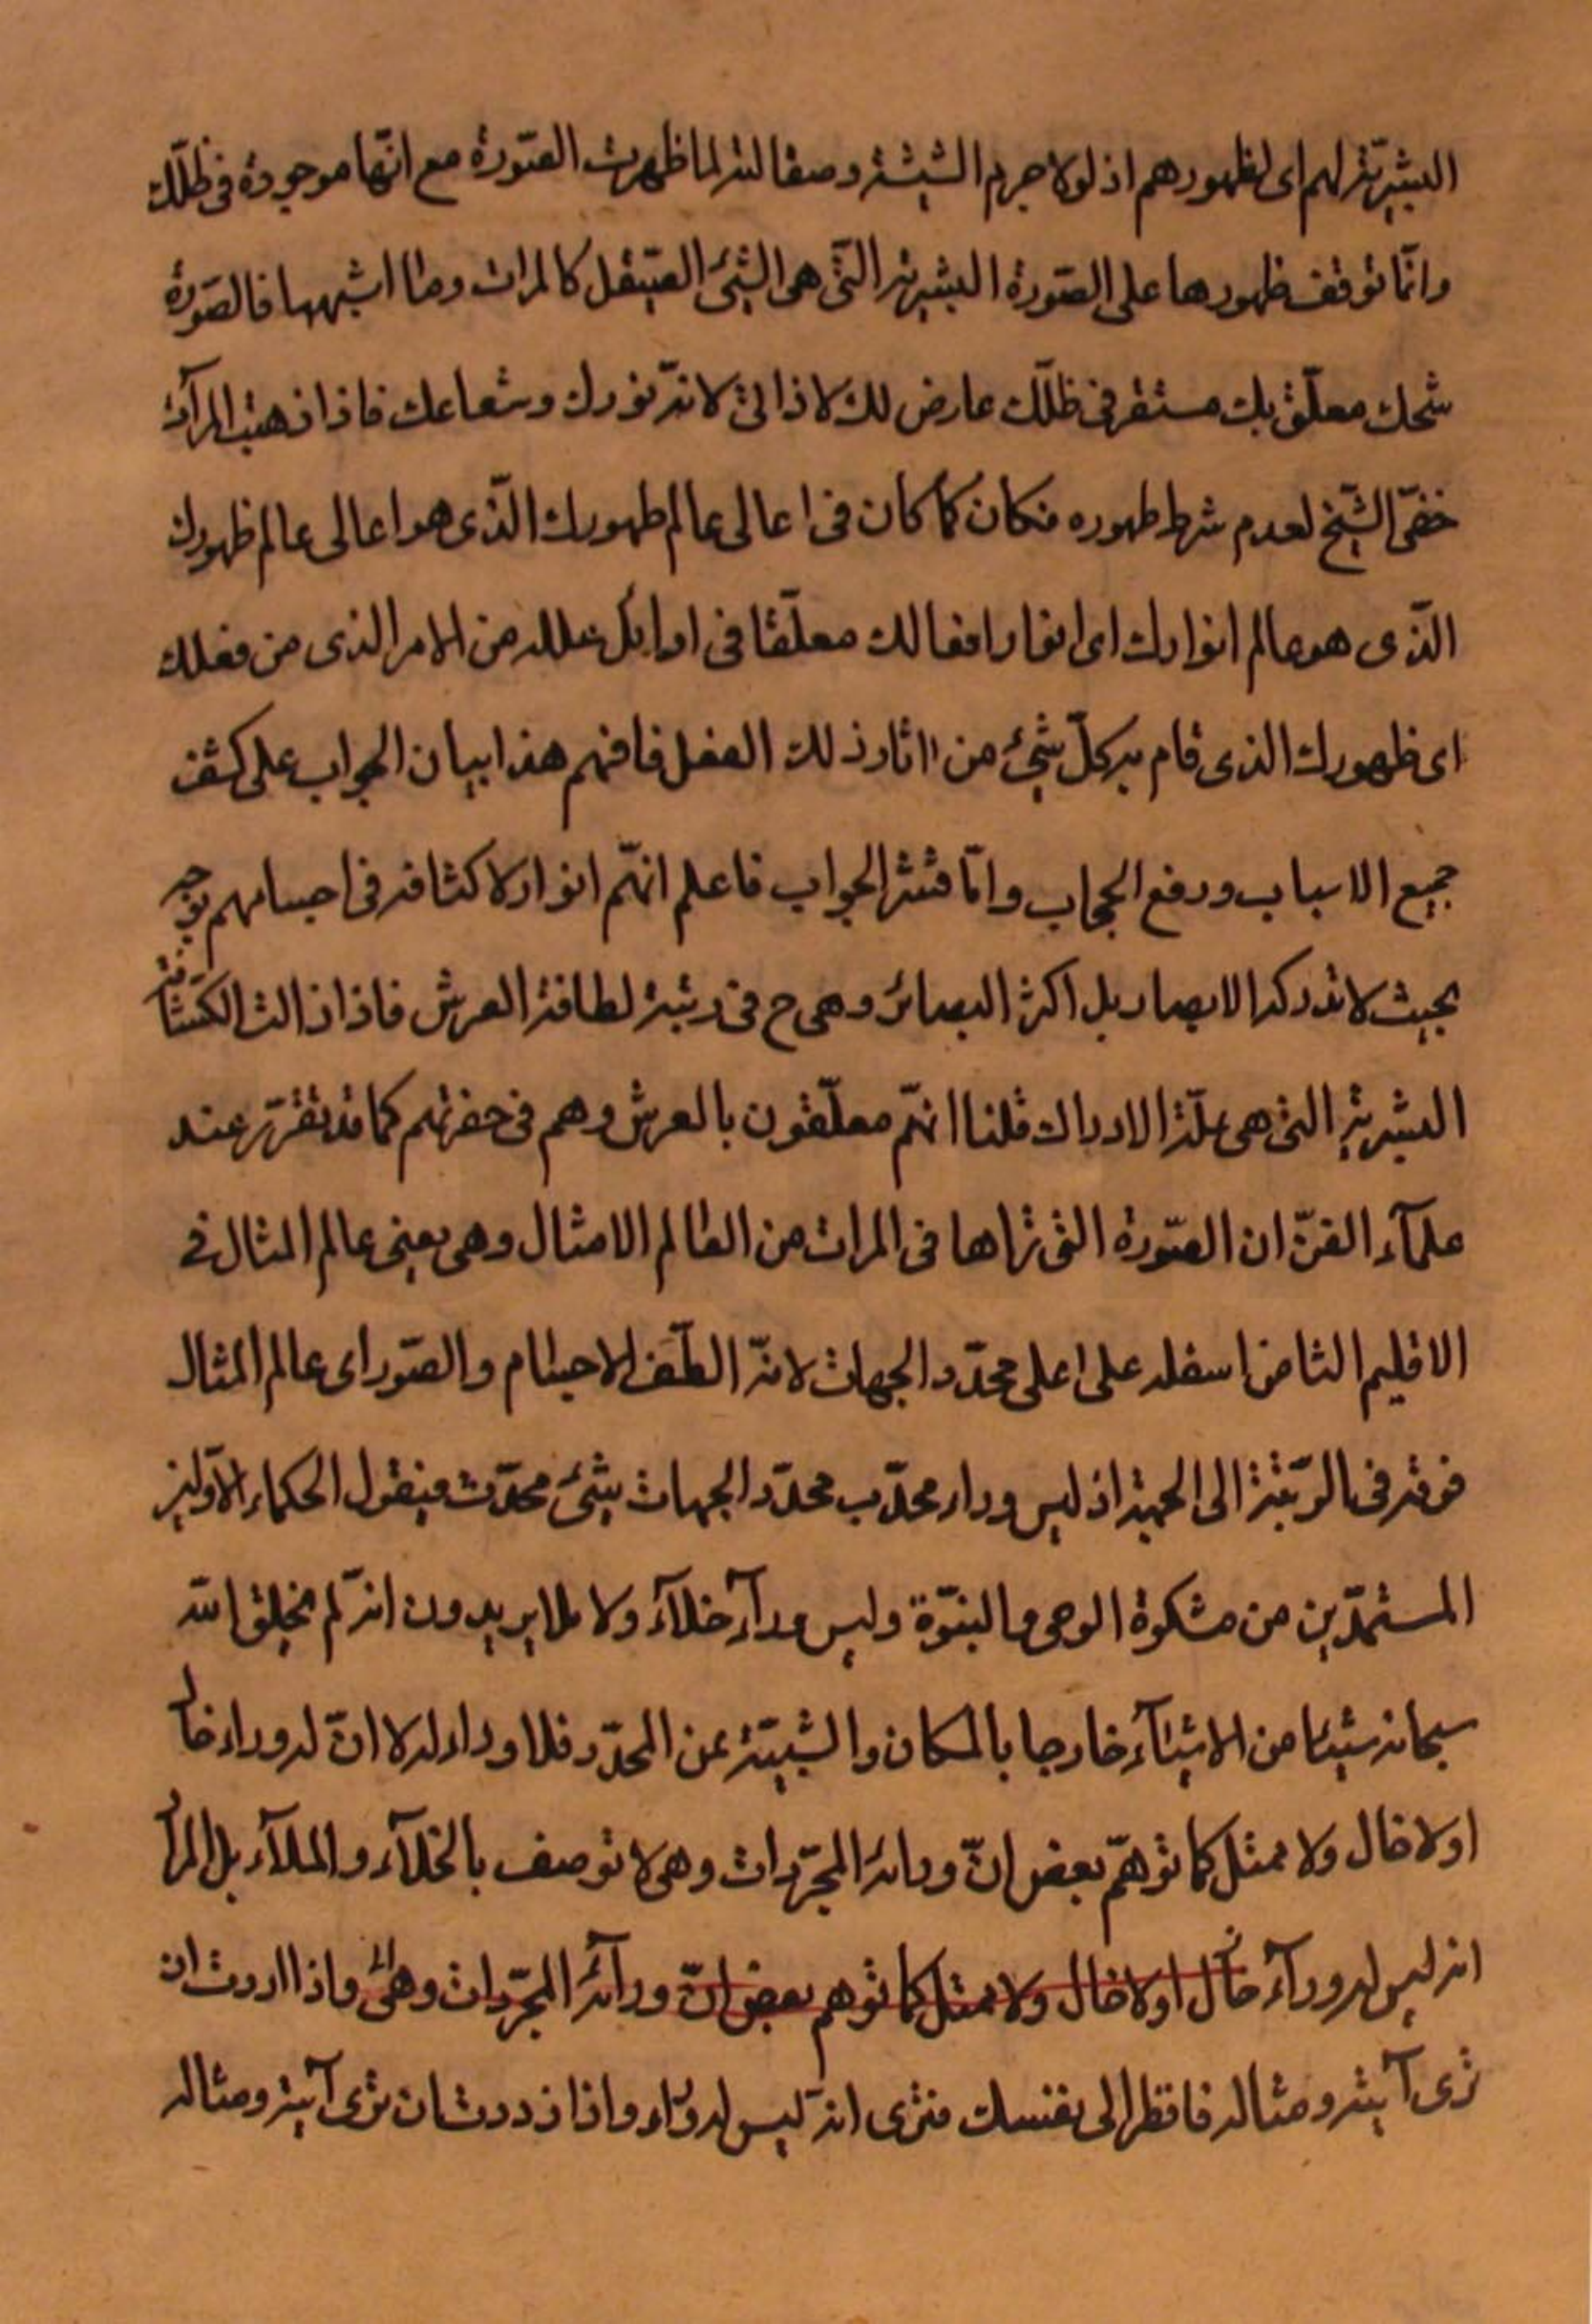 البشريّة لهم اى لظهورهم اذ لولا جرم الشيشة وصقالته لما ظهرت الصّورة مع انّها موجودة فى ظلّك
وانّما توقف ظهورها على الصّورة البشرية الّتى هى الشئ الصّيقل كالمرات وما اشبهها فالصّورة
شبحك معلّق بك مستقر فى ظلّك عارض لك لا ذاتى لانّه نورك وشعاعك فاذا ذهبت المرآة
خفى الشّبح لعدم شرط ظهوره فكان كما كان فى اعالى عالم ظهورك الّذى هو اعالى عالم ظهورك
الّذى هو عالم انوارك اى انوار افعالك معلّقا فى اوايل علله من الامر الذى من فعلك
اى ظهورك الذى قام به كلّ شئ من اثار ذلك الفعل فافهم هذا بيان الجواب على كشف
جميع الاسباب ورفع الحجاب وامّا قشر الجواب فاعلم انهّم انوار لا كثافة فى اجسامهم بوجه
بحيث لا تدركه الابصار بل اكثر البصائر وهى ح فى رتبة لطافة العرش فاذا زالت الكثافة
البشرية التى هى علّة الادراك قلنا انهّم معلّقون بالعرش وهم فى حفرتهم كما قد تقرّر عند
علمآء الفنّ ان الصّورة التى تراها فى المرات من العالم الامثال وهى يعنى عالم المثال فى
الاقليم الثامن اسفله على اعلى محدّد الجهات لانّه الطف الاجسام والصّور اى عالم المثال
فوقه فى الرّتبة الى الجهة اذ ليس وراء محدّب محدّد الجهات شئ محدّث فيقول الحكماء الاوّلين
المستمدّين من مشكوة الوحى والنبوّة وليس ورآء خلآء ولا ملا يريدون انّه لم يخلق الله
سبحانه شيئا من الاشيآء خارجا بالمكان والشّيئيّة عن المحدّد فلا وراء له لا انّ له وراء خال
اولا خال ولا ممثل كما توهّم بعض انّ ورائه المجرّدات وهى لا توصف بالخلآء والملآء بل المراد
انه ليس له ورآء خال اولا خال ولا ممثل كما توهم بعض انّ ورآئه المجرّدات وهى واذا اردت ان
ترى آيته ومثاله فانظر الى نفسك فترى انّه ليس له وراء واذا زددت ان ترى آيته ومثاله